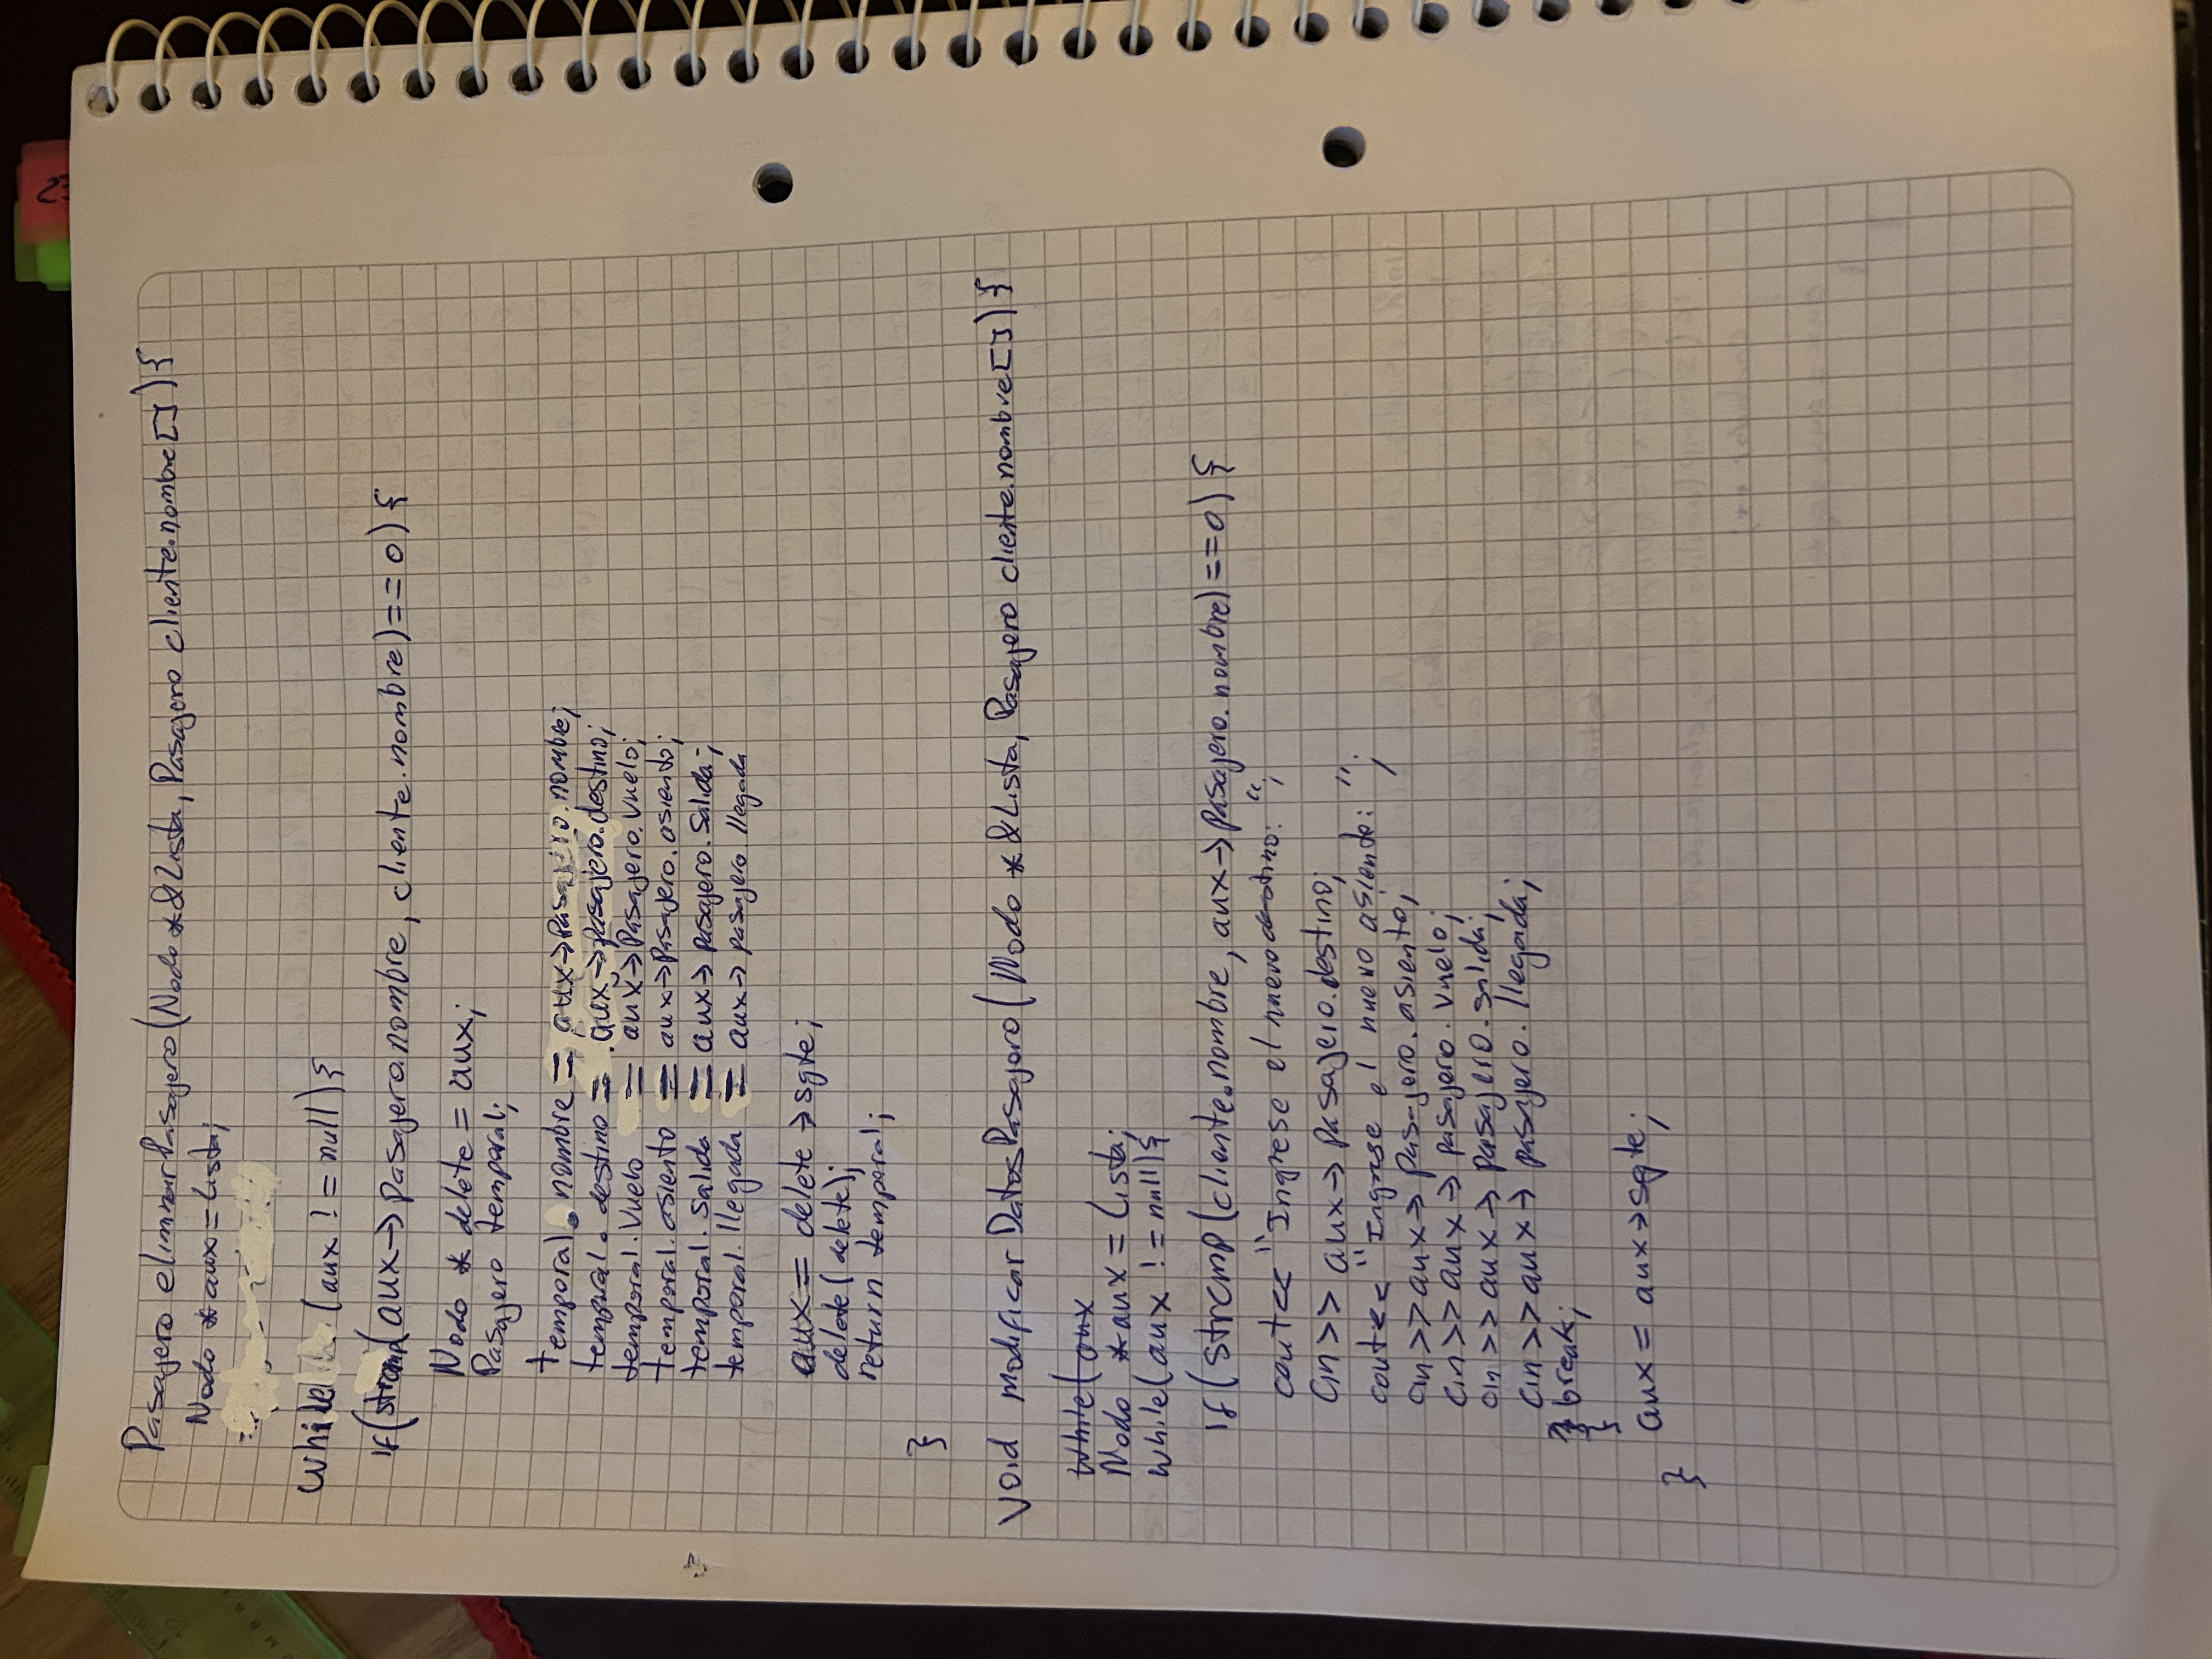 Pasajero eliminarPasajero(Nodo *&Lista, Pasajero cliente.nombre[]){
Nodo *aux = Lista;
while (aux != null){
if(strcmp(aux->pasajero.nombre, cliente.nombre)==0){
Nodo * delete = aux;
Pasajero temporal;
temporal.nombre = aux->pasajero.nombre;
temporal.destino = aux->pasajero.destino;
temporal.vuelo = aux->Pasajero.vuelo;
temporal.asiento = aux->Pasajero.asiento;
temporal.salida = aux->pasajero.salida;
temporal.llegada = aux->pasajero llegada
aux = delete->sgte;
delete(delete);
return temporal;
}
void modificarDatosPasajero(Nodo *&Lista, Pasajero cliente.nombre[]){
while(aux
Nodo *aux = Lista;
while(aux != null){
if(strcmp(cliente.nombre, aux->pasajero.nombre)==0){
cout<< "Ingrese el nuevo destino: ";
cin>> aux->pasajero.destino;
cout<< "Ingrese el nuevo asiento: ";
cin>>aux->pasajero.asiento;
cin>>aux->pasajero.vuelo;
cin>>aux->pasajero.salida;
cin>>aux->pasajero.llegada;
} break;
}
aux = aux->sgte;
}